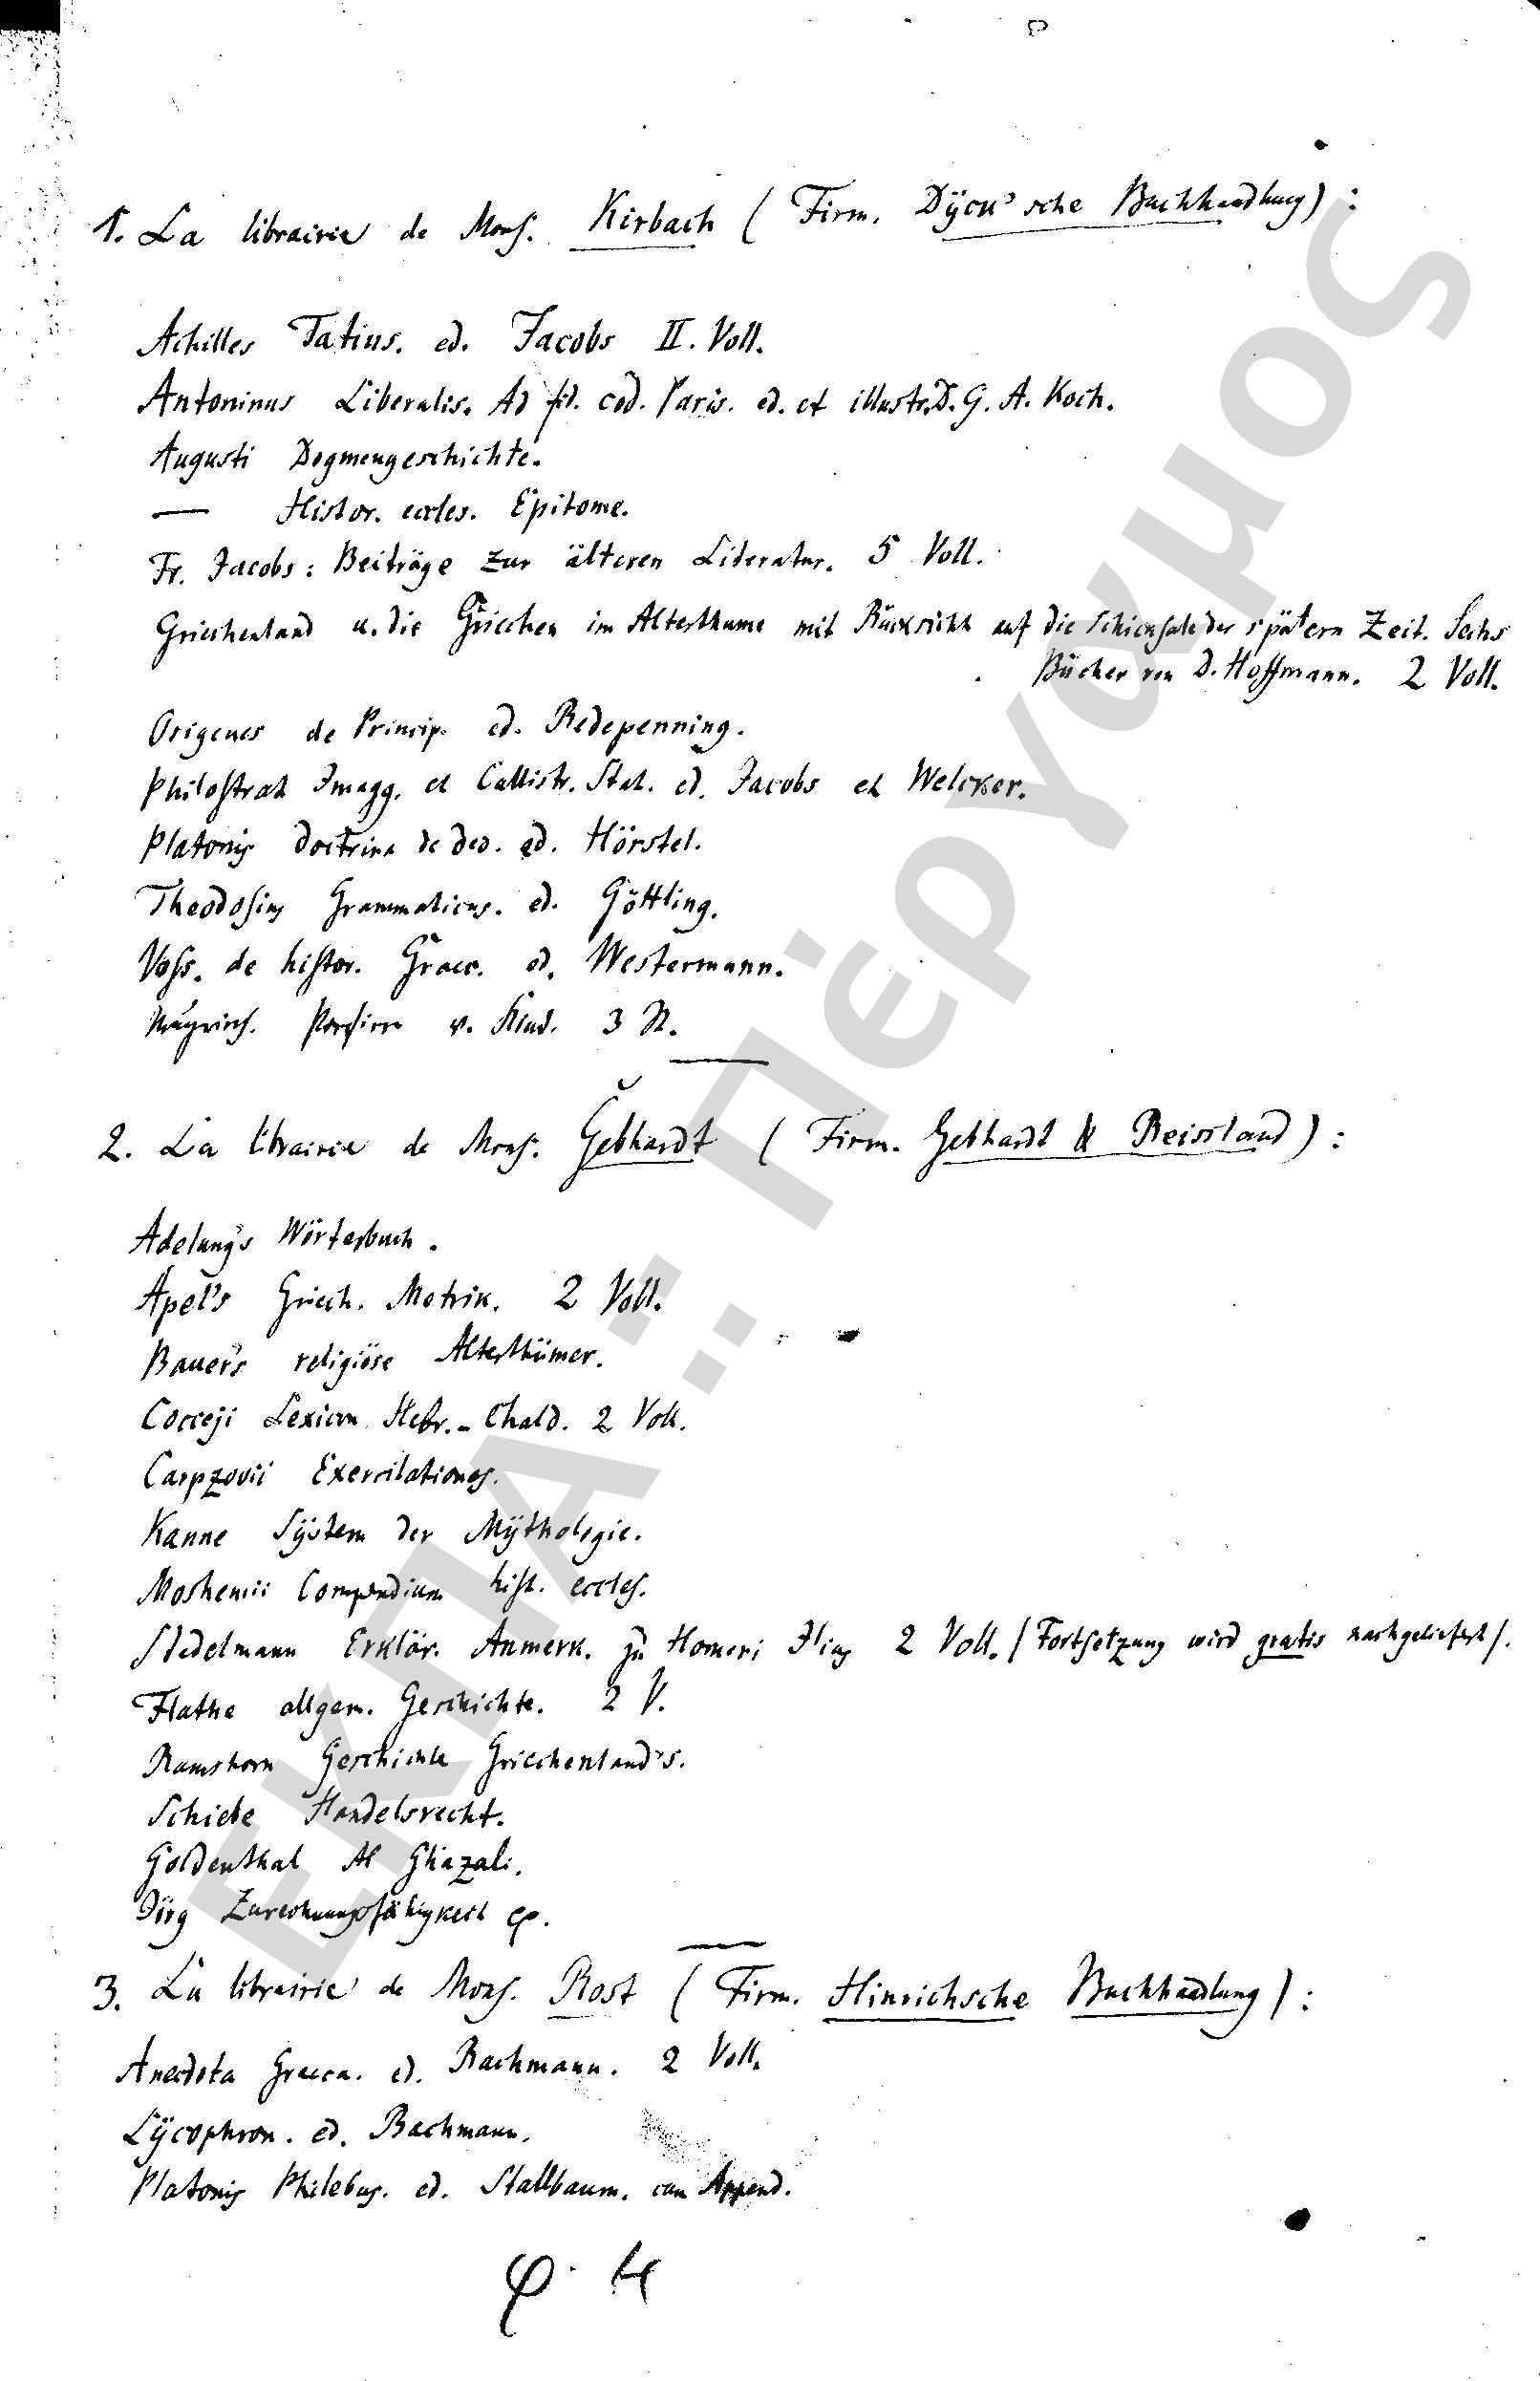 1. La librairie de Mons. Kirbach (Firm. Dÿck'sche Buchhandlung):
Achilles Tatius. ed. Jacobs II. Voll.
Antoninus Liberalis. Ad fid. cod. Paris. ed. et illustr. D. G. A. Koch.
Augusti Dogmengeschichte.
— Histor. eccles. Epitome.
Fr. Jacobs: Beiträge zur älteren Literatur. 5 Voll.
Griechenland u. die Griechen im Alterthume mit Rücksicht auf die Schicksale der spätern Zeit. Sechs
Bücher von D. Hoffmann. 2 Voll.
Origenes de Princip. ed. Redepenning.
Philostrat Imagg. et Callistr. Stat. ed. Jacobs et Welcker.
Platonis doctrina de deo. ed. Hörstel.
Theodosius Grammaticus. ed. Göttling.
Voss. de histor. Graec. ed. Westermann.
v. Kind. 3
2. La librairie de Mons. Gebhardt (Firm. Gebhardt & Reissland):
Adelung's Wörterbuch.
Apel's Griech. Metrik. 2 Voll.
Bauer's religiöse Alterthümer.
Cocceji Lexicon Hebr.-Chald. 2 Voll.
Carpzovii Exercitationes.
Kanne Sÿstem der Mÿthologie.
Moshemii Compendium hist. eccles.
Stadelmann Erklär. Anmerk. zu Homeri Ilias 2 Voll. /Fortsetzung wird gratis nachgeliefert/.
Flathe allgem. Geschichte. 2 V.
Ramshorn Geschichte Griechenland's.
Schiebe Handelsrecht.
Goldenthal Al Ghazali.
Jörg Zurechnungsfähigkeit
3. La librairie de Mons. Rost (Firm. Hinrichsche Buchhandlung):
Anecdota Graeca. ed. Bachmann. 2 Voll.
Lÿcophron. ed. Bachmann.
Platonis Philebus. ed. Stallbaum. cum Append.
ΕΚΠΑ: Πέργαμος